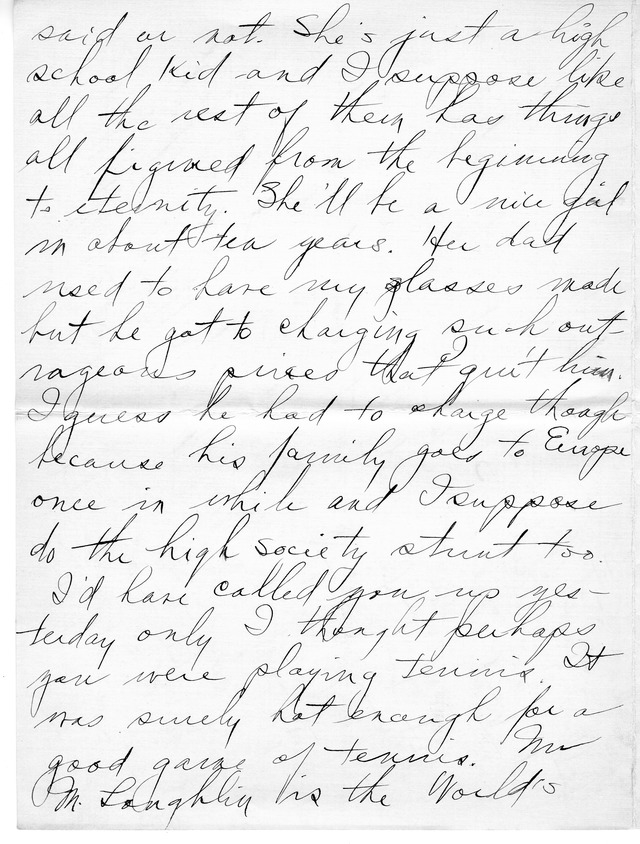 said or not. She's just a high
school kid and I suppose like
all the rest of them has things
all figured from the beginning
to eternity. She'll be a nice girl
in about ten years. Her dad
used to have my glasses made
but he got to charging such out-
rageous prices that I quit him.
I guess he had to charge though
because his family goes to Europe
once in while and I suppose
do the high society stunt too.
I'd have called you up yes-
terday only I thought perhaps
you were playing tennis. It
was surely hot enough for a
good game of tennis. Mr
McLoughlin is the World's